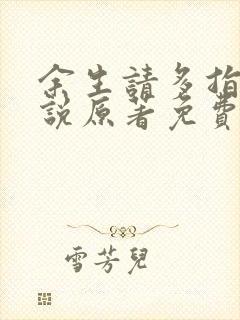 余生請多指
說原著免費
雪芳兒